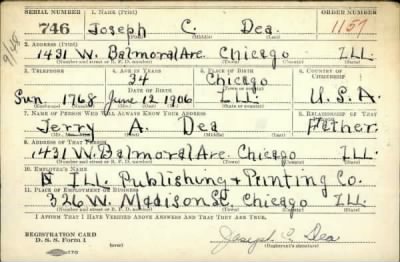 SERIAL NUMBER 1. NAME (Print) ORDER NUMBER
746 Joseph C. Dea 1157
(First) (Middle) (Last)
2. ADDRESS (Print)
1431 W. Balmoral Ave. Chicago ILL.
(Number and street or R. F. D. number) (Town) (County) (State)
3. TELEPHONE 4. AGE IN YEARS 5. PLACE OF BIRTH 6. COUNTRY OF CITIZENSHIP
34 Chicago
Sun 1768 June 12 1906 ILL. U.S.A.
7. NAME OF PERSON WHO WILL ALWAYS KNOW YOUR ADDRESS 8. RELATIONSHIP OF THAT PERSON
Jerry A. Dea Father
9. ADDRESS OF THAT PERSON
1431 W. Balmoral Ave. Chicago ILL.
(Number and street or R. F. D. number) (Town) (County) (State)
10. EMPLOYER'S NAME
ILL. Publishing & Printing Co.
11. PLACE OF EMPLOYMENT OR BUSINESS
326 W. Madison St. Chicago ILL
(Number and street or R. F. D. number) (Town) (County) (State)
I AFFIRM THAT I HAVE VERIFIED ABOVE ANSWERS AND THAT THEY ARE TRUE.
REGISTRATION CARD
D. S. S. Form 1
Joseph C. Dea
(Registrant's signature)